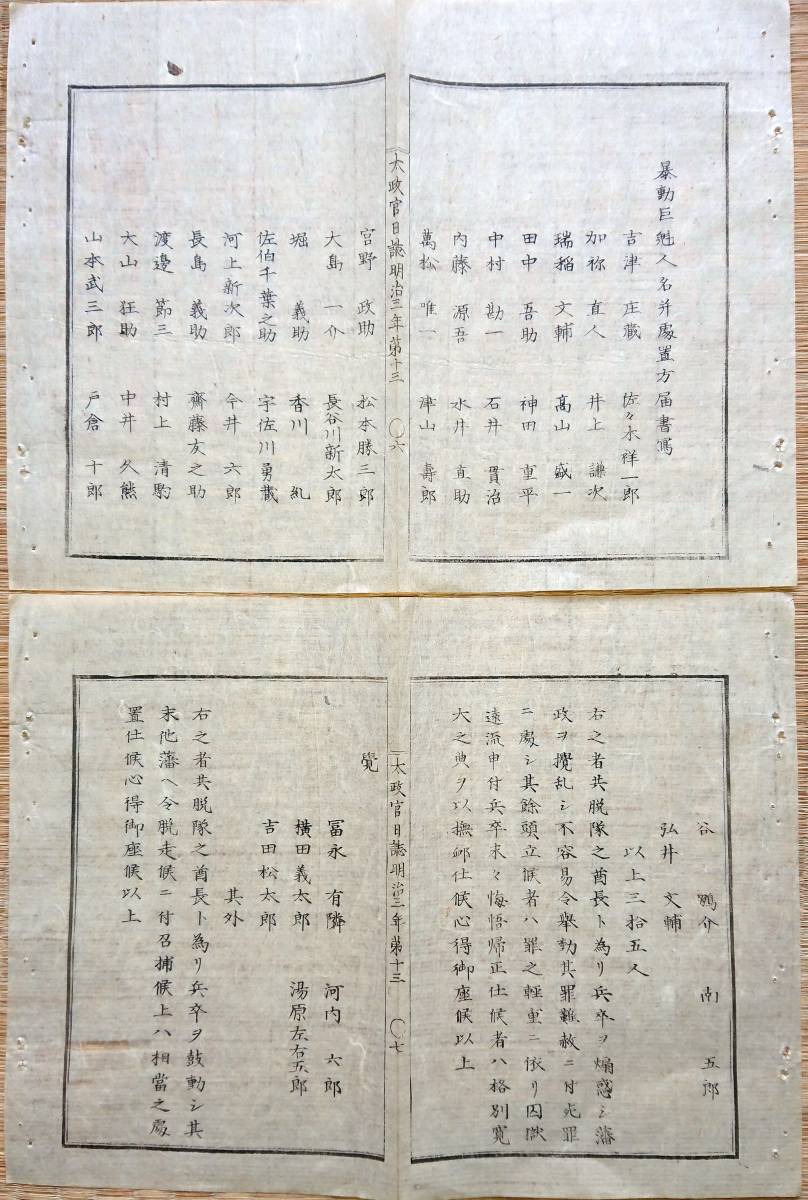 暴動巨魁人名并處置方届書寫
吉津 庄藏 佐々木祥一郎
加祢 直人 井上 謙次
瑞稲 文輔 髙山 盛一
田中 吾助 神田 重平
中村 勘一 石井 貫治
内藤 源吾 水井 直助
萬松 唯一 津山 壽郎
太政官日誌明治三年第十三 〇六
宮野 政助 松本勝三郎
大島 一介 長谷川新太郎
堀 義助 香川 乣
佐伯千葉之助 宇佐川勇藏
河上新次郎 今井 六郎
長島 義助 齊藤友之助
渡邊 節三 村上 清駒
大山 狂助 中井 久熊
山本武三郎 戸倉 十郎
谷 鴨介 南 五郎
弘井 文輔
以上三拾五人
右之者共脱隊之酋長ト為リ兵卒ヲ煽惑シ藩
政ヲ攪乱シ不容易令舉動其罪難赦ニ付死罪
ニ處シ其餘頭立候者ハ罪之輕重ニ依リ囚獄
遠流申付兵卒末々悔悟帰正仕候者ハ格別寛
大之典ヲ以撫衈仕候心得御座候以上
太政官日誌明治三年第十三 〇七
覺
冨永 有隣 河内 六郎
横田義太郎 湯原左右五郎
吉田松太郎
其外
右之者共脱隊之酋長ト為リ兵卒ヲ鼓動シ其
末他藩ヘ令脱走候ニ付召捕候上ハ相當之處
置仕候心得御座候以上